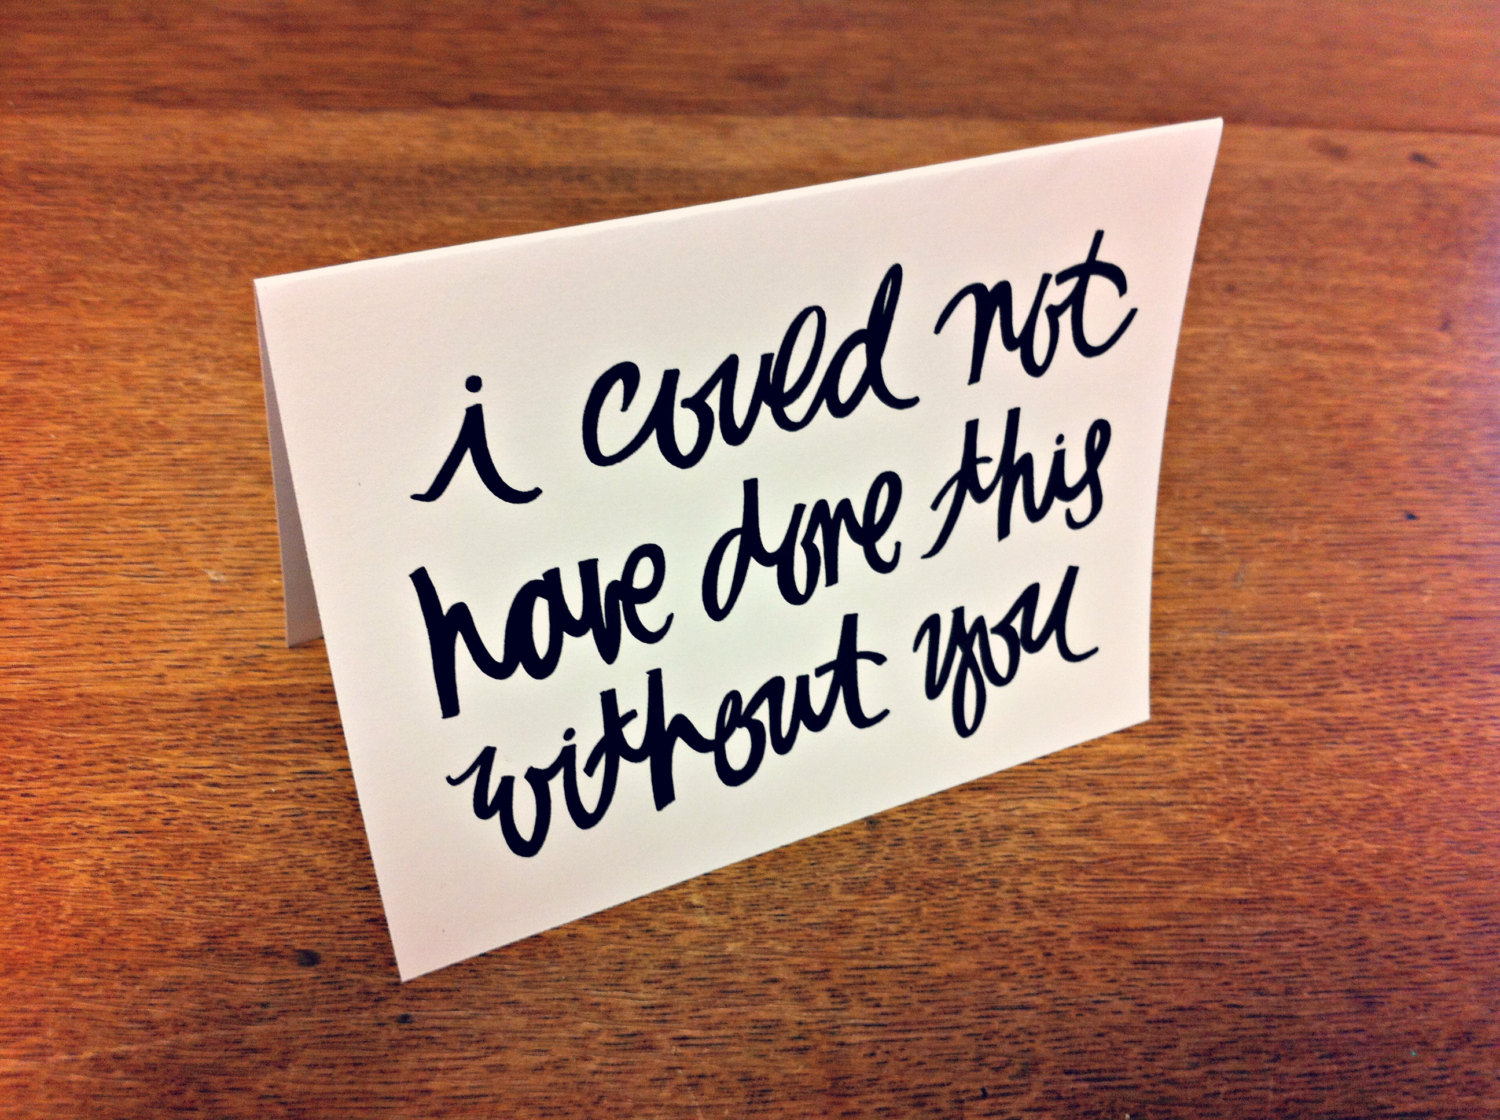 i could not
have done this
without you